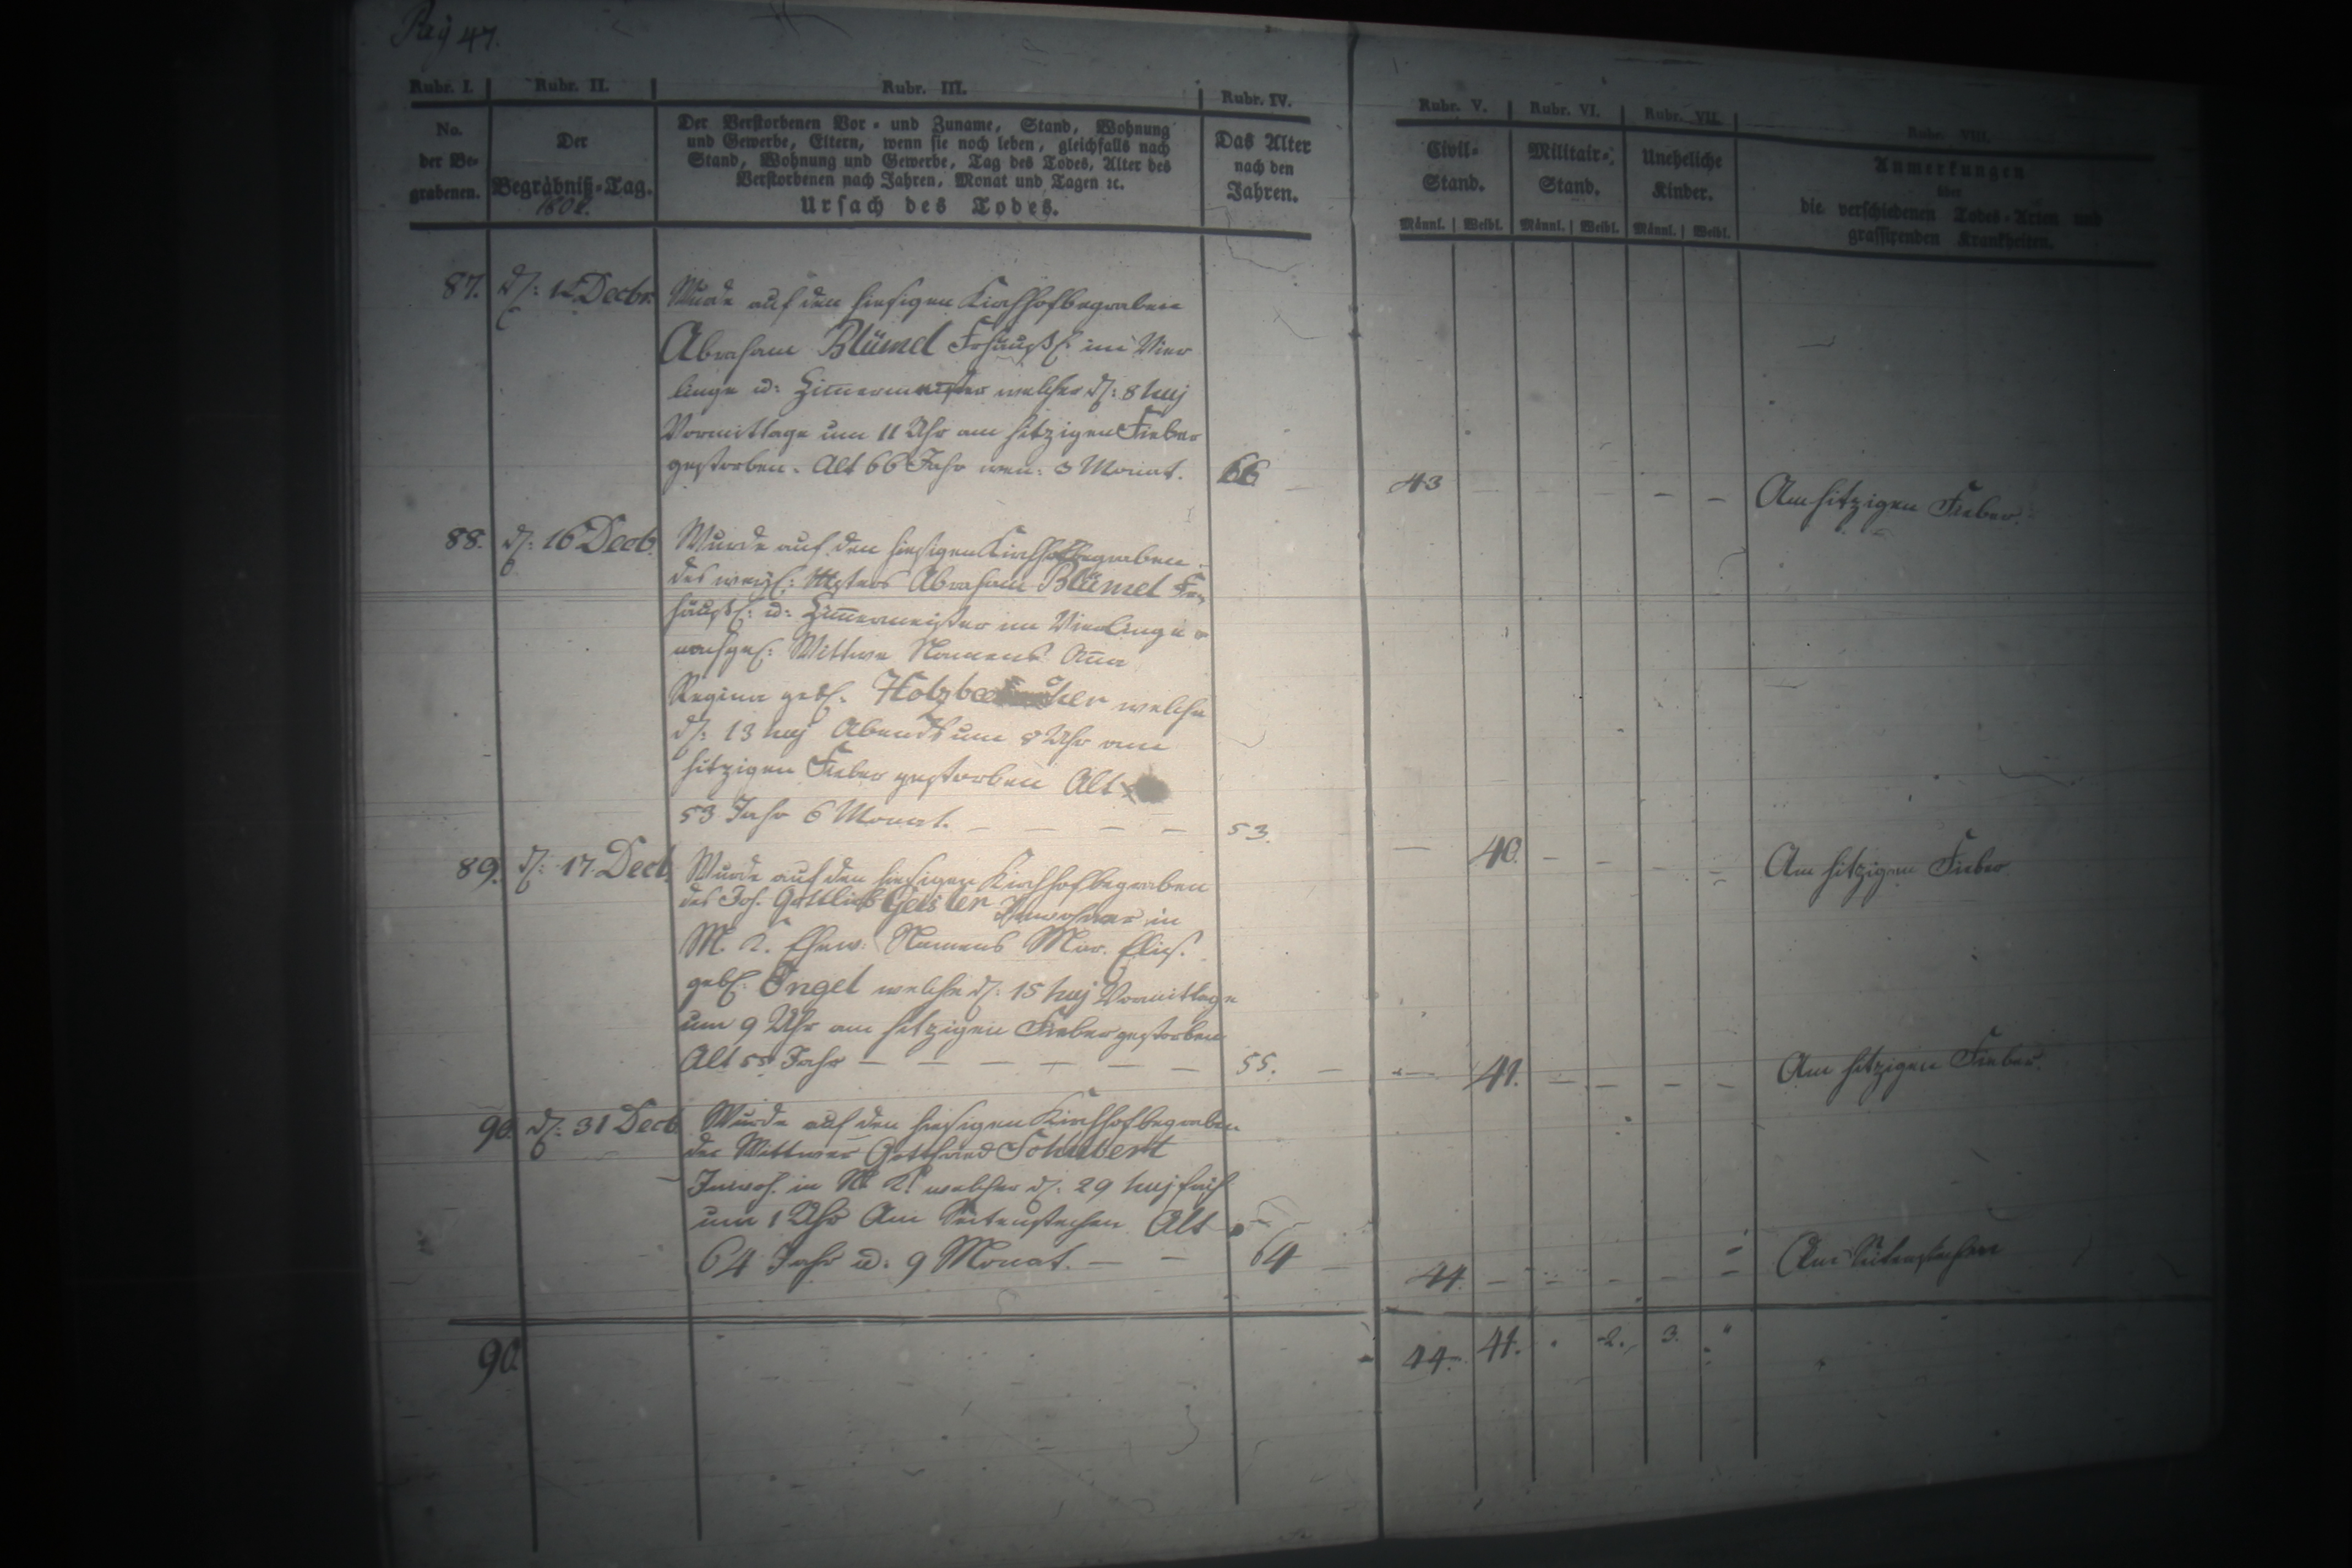 Pag 47.
Rubr. I. Rubr. II. Rubr. III. Rubr. IV. Rubr. V. Rubr. VI. Rubr. VII. Rubr. VIII.
No.
der Be-
grabenen.
Der
Begräbniß-Tag.
1802.
Der Verstorbenen Vor- und Zuname, Stand, Wohnung
und Gewerbe, Eltern, wenn sie noch leben, gleichfalls nach
Stand, Wohnung und Gewerbe, Tag des Todes, Alter des
Verstorbenen nach Jahren, Monat und Tagen ꝛc.
Ursach des Todes.
Das Alter
nach den
Jahren.
Civil-
Stand.
Männl. Weibl.
Militair-
Stand.
Männl. Weibl.
Uneheliche
Kinder.
Männl. Weibl.
Anmerkungen
über
die verschiedenen Todes-Arten und
grassirenden Krankheiten.
87. d. 12 Decbr. Wurde auf den hiesigen Kirchhof begraben
Abraham Blümel Frhäußl. im Vier
linge u: Zimermeister welcher d: 8 huj
Vormittage um 11 Uhr am hitzigen Fieber
gestorben. Alt 66 Jahr wen: 3 Monat. 66 — 43 — — — — — Am hitzigen Fieber.
88. d: 16 Decb. Wurde auf den hiesigen Kirchhof begraben
des weyl: Msters Abraham Blümel Fr-
häußl: u: Zimermeister im Vierlinge
nachgel: Wittwe Namens Anna
Regina geb. welche
d: 13 huj Abends um 8 Uhr am
hitzigen Fieber gestorben Alt
53 Jahr 6 Monat. — — — — 53. — 40. — — — — Am hitzigen Fieber
89. d: 17. Decb. Wurde auf den hiesigen Kirchhof begraben
des Joh. Gottlieb Geisler Inwohner in
M. L. Ehew: Namens Mar. Elis.
geb. Engel welche d: 15 huj Vormittage
um 9 Uhr am hitzigen Fieber gestorben
Alt 55 Jahr — — — — — — 55. — — 41. — — — — Am hitzigen Fieber.
90. d: 31 Decb Wurde auf den hiesigen Kirchhof begraben
der Wittwer Gottfried Schubert
Inwoh. in welcher d: 29 huj früh
um 1 Uhr Am Seitenstechen Alt
64 Jahr u: 9 Monat. — — 64 — 44. — — — — — Am Seitenstechen
90. 44. 41. . 2. 3. "